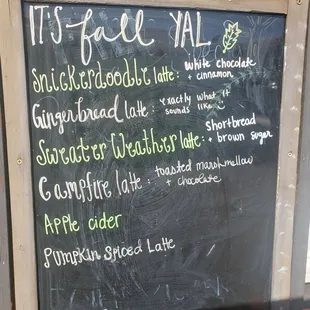 IT'S fall YAL
Snickerdoodle latte: white chocolate
+ cinnamon
Gingerbread latte: exactly what it
sounds like
Sweater Weather latte: shortbread
+ brown sugar
Campfire latte: toasted marshmellow
+ chocolate
Apple cider
Pumpkin Spiced Latte